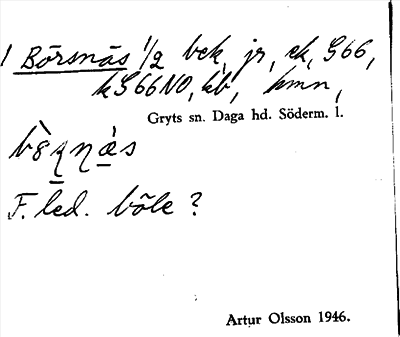 Börsnäs 1/2 bck, jr, ek, G66,
kG66NO, kb, hmn,
Gryts sn. Daga hd. Söderm. l.
F. led. böle?
Artur Olsson 1946.